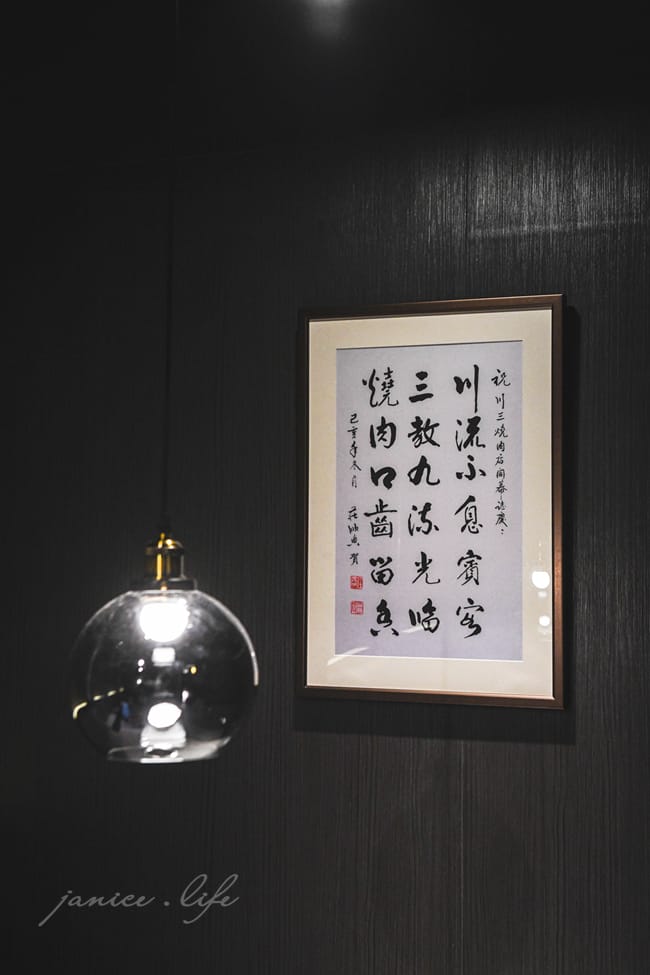 祝川三燒肉店開幕誌慶：
川流不息賓客
三教九流光臨
燒肉口齒留香
己亥年冬月 莊 賀
janice.life